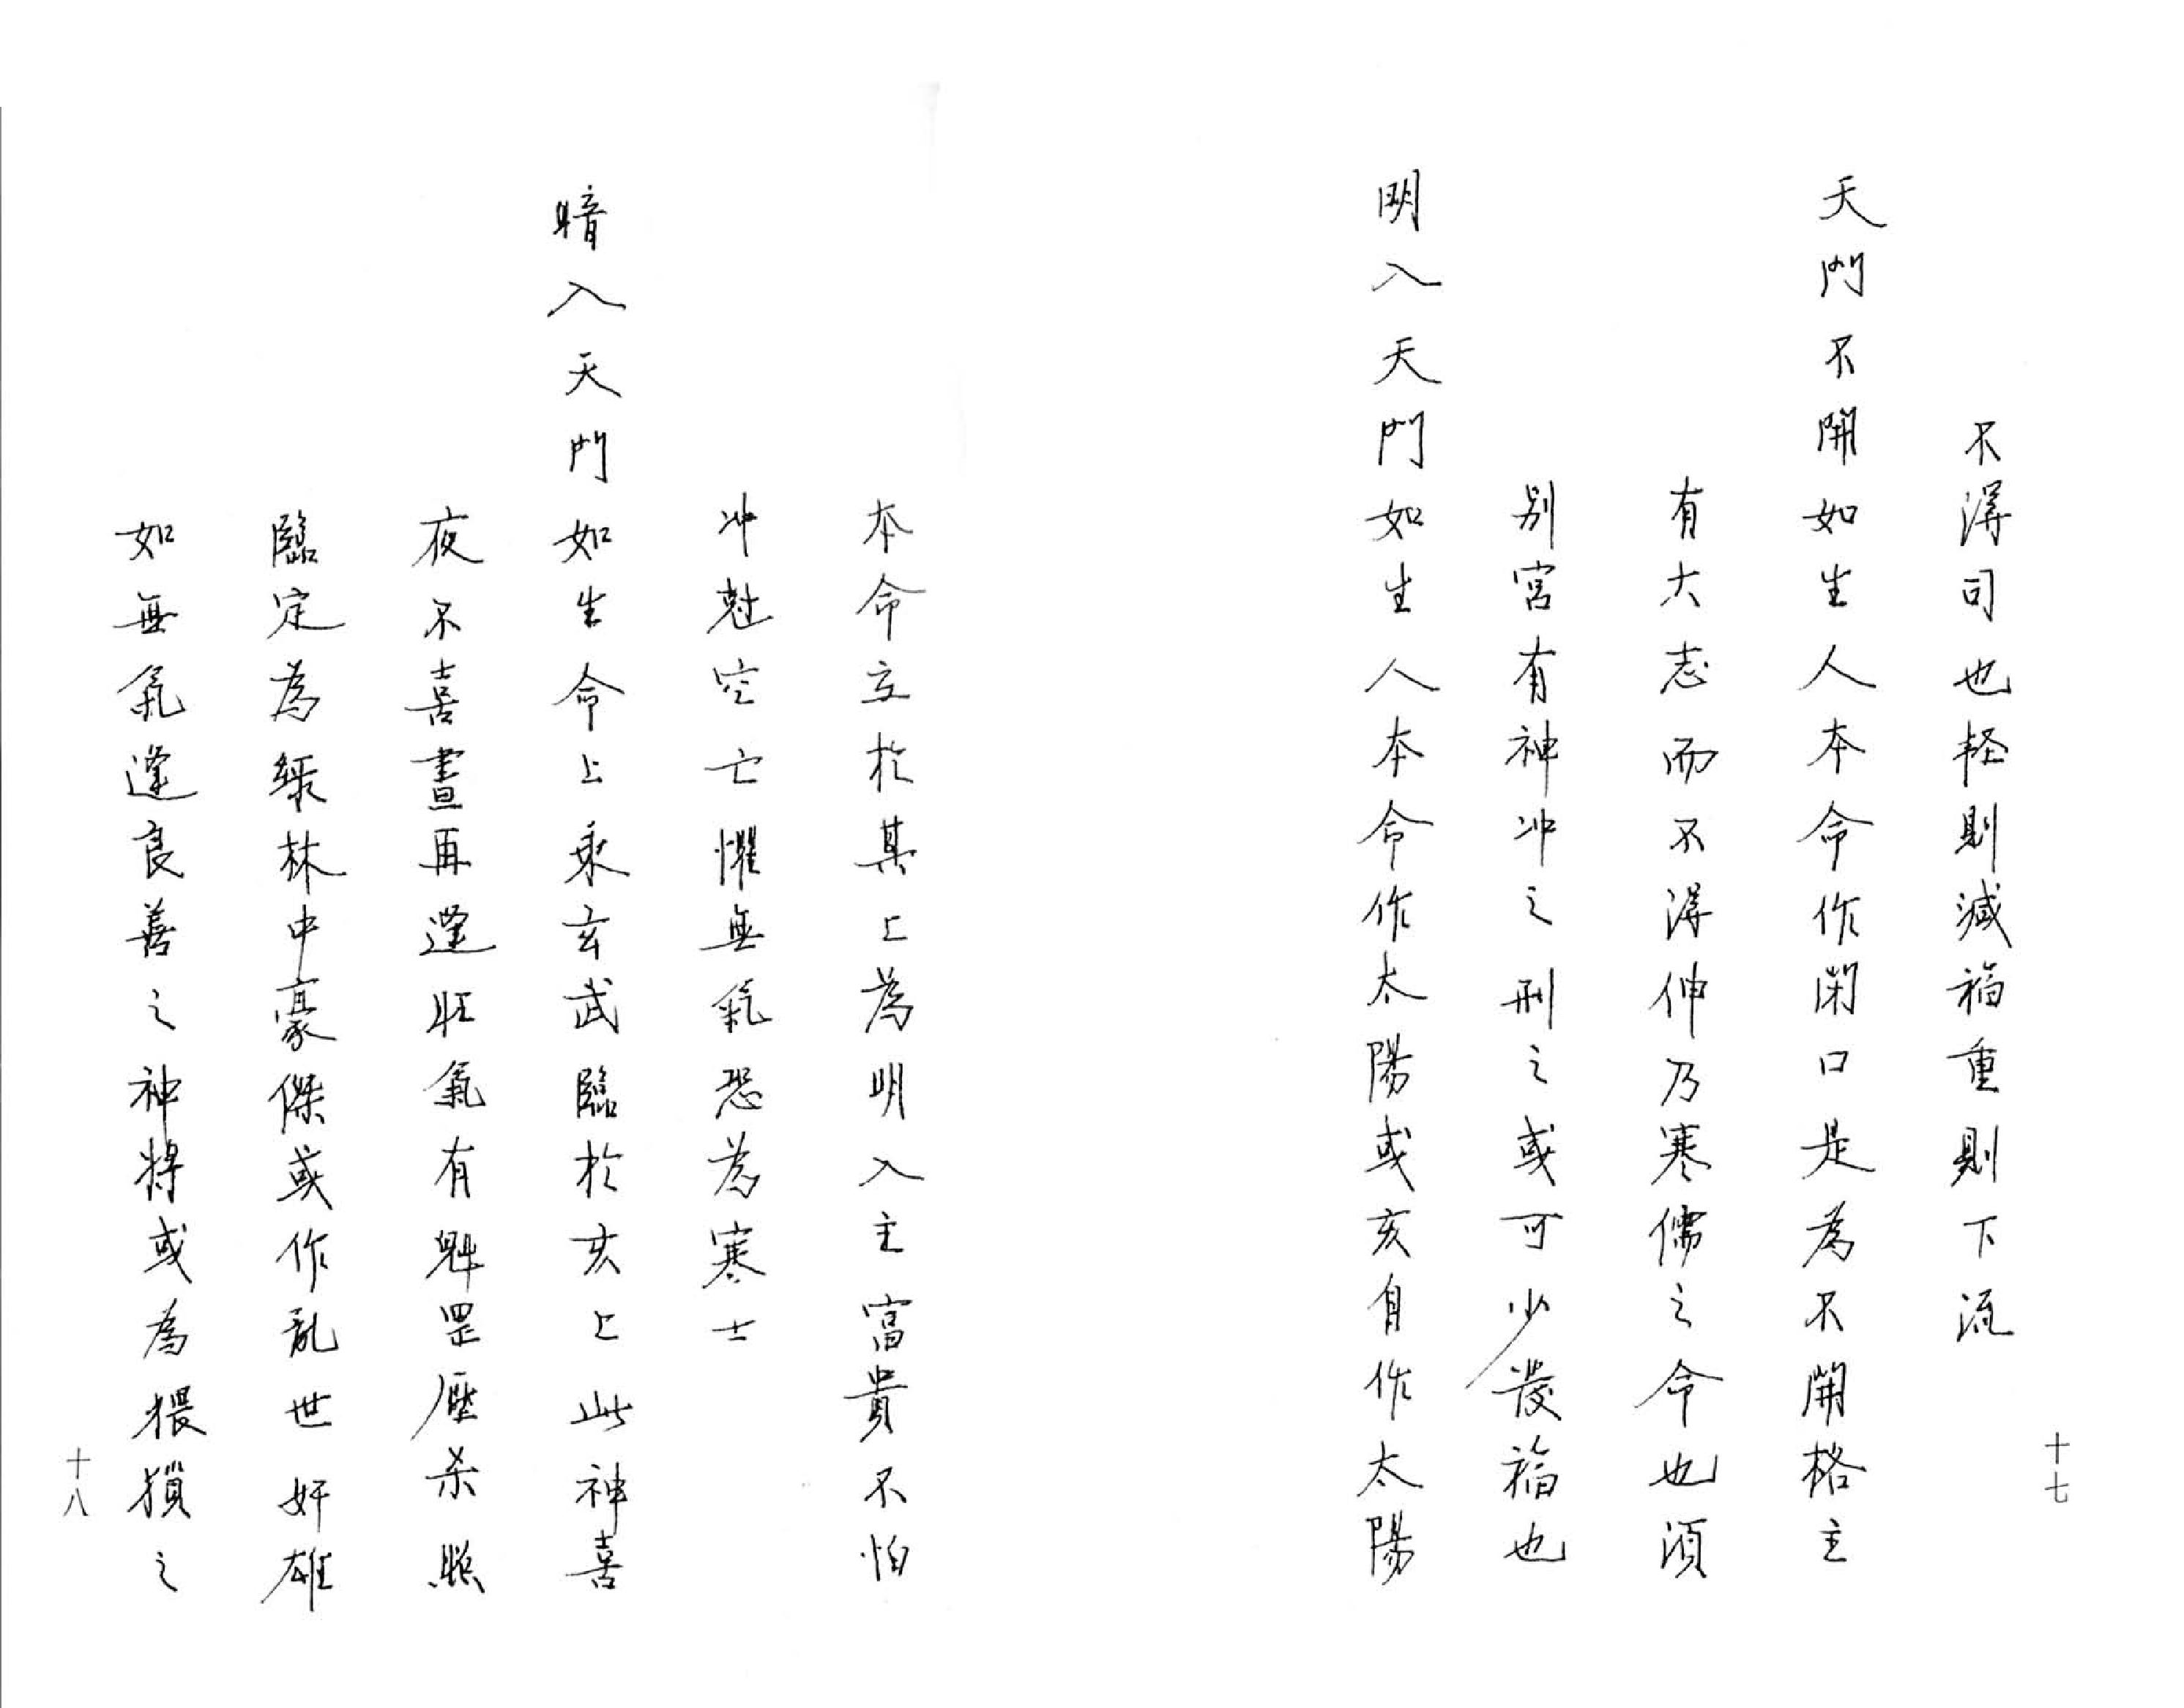 不得司也軽則減福重則下流
天門不開如生人本命作閉口是為不開格主
有大志而不得伸乃寒儒之命也須
别宮有神冲之刑之或可少發福也
明入天門如生人本命作太陽或亥自作太陽
十七
本命立於其上為明入主富貴不怕
冲尅空亡懼無氣恐為寒士
暗入天門如生命上乘玄武臨於亥上此神喜
夜不喜晝再逢旺氣有魁罡壓杀照
臨定為緑林中豪傑或作乱世奸雄
如無氣逢良善之神将或為猥𤨏之
十八